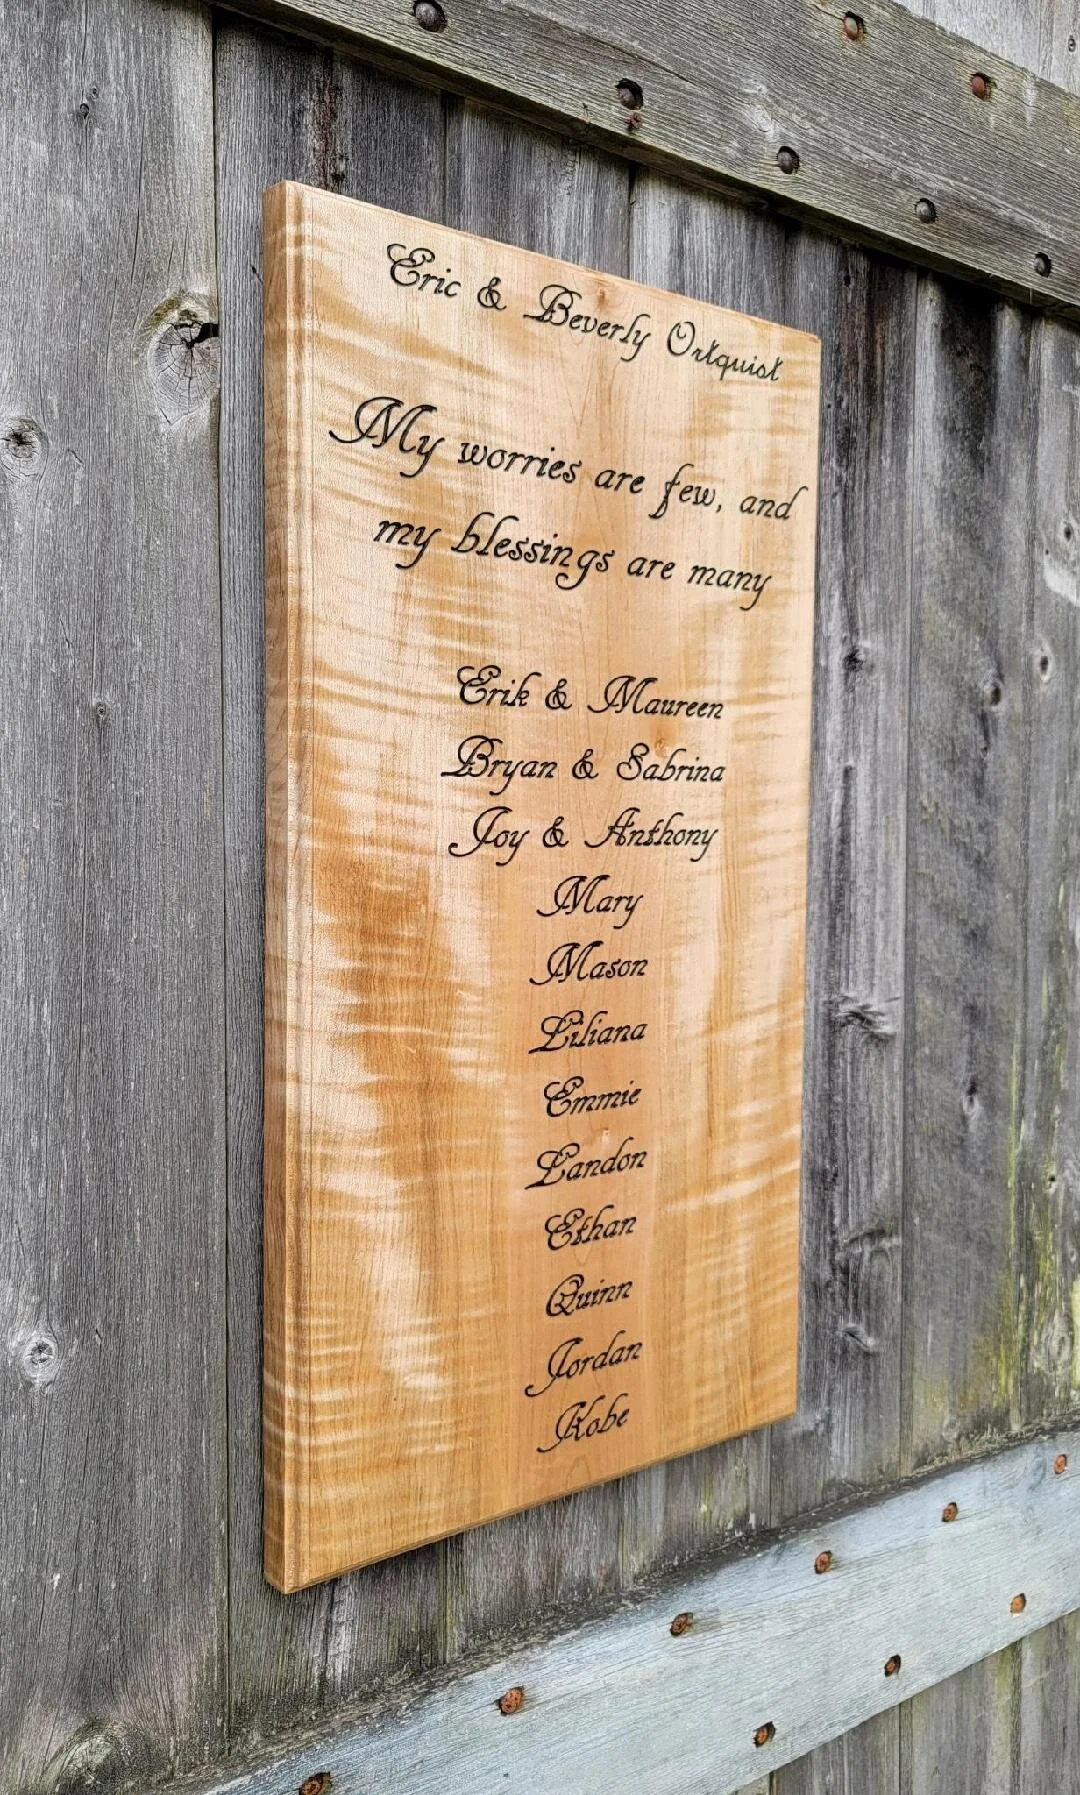 Eric & Beverly Ortquist
My worries are few, and
my blessings are many
Erik & Maureen
Bryan & Sabrina
Joy & Anthony
Mary
Mason
Liliana
Emmie
Landon
Ethan
Quinn
Jordan
Kobe